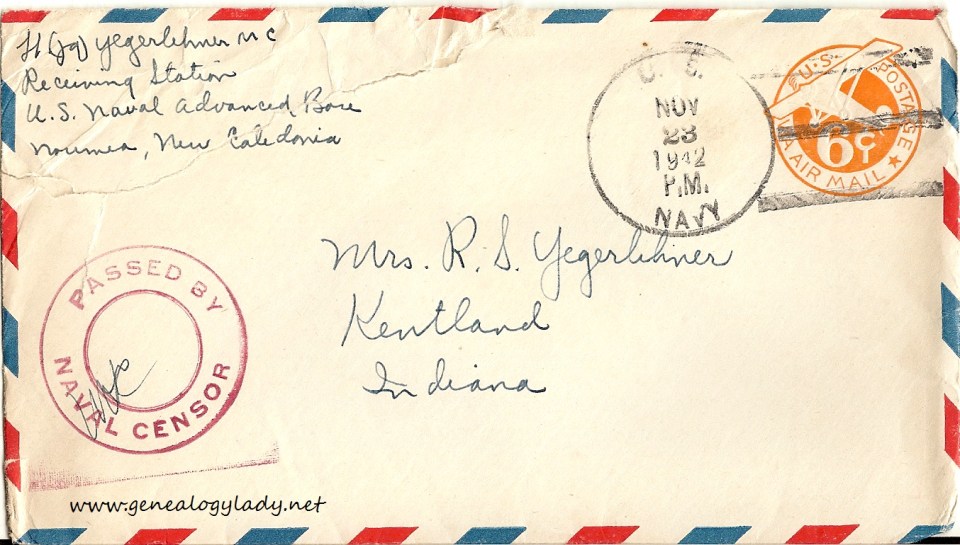 Lt (jg) Yegerlehner MC
Receiving Station
U.S. Naval Advanced Base
Noumea, New Caledonia
U. S.
NOV
23
1942
P.M.
NAVY
U.S. POSTAGE
6¢
VIA AIR MAIL
Mrs. R. S. Yegerlehner
Kentland
Indiana
PASSED BY
NAVAL CENSOR
www.genealogylady.net